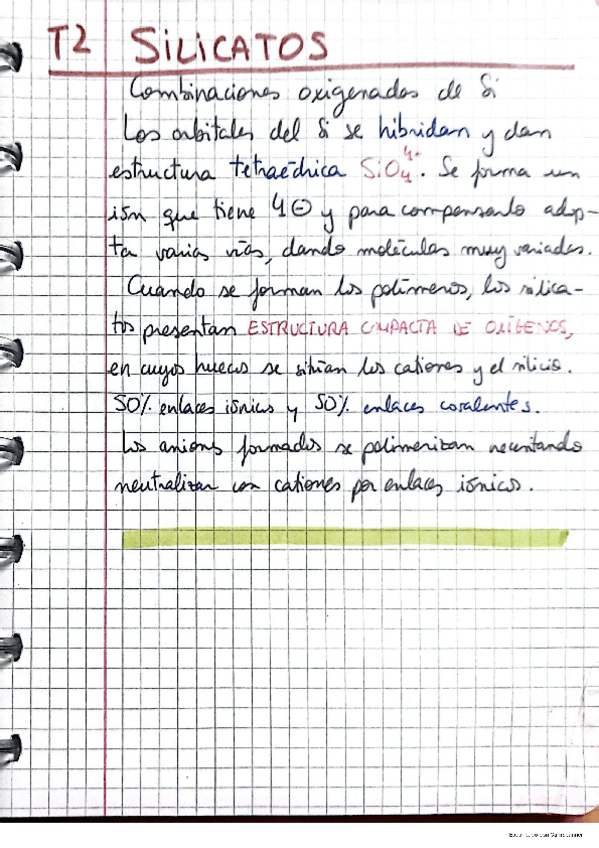 T2 SILICATOS
Combinaciones oxigenadas de Si
Los orbitales del Si se hibridan y dan
estructura tetraédrica SiO₄⁴⁺. Se forma un
ión que tiene 4⊖ y para compensarlo adop-
ta varias vías, dando moléculas muy variadas.
Cuando se forman los polímeros, los silica-
tos presentan ESTRUCTURA COMPACTA DE OXÍGENOS,
en cuyos huecos se sitúan los cationes y el silicio.
50% enlaces iónicos y 50% enlaces covalentes.
Los anions formados se polimerizan necesitando
neutralizar con cationes por enlaces iónicos.